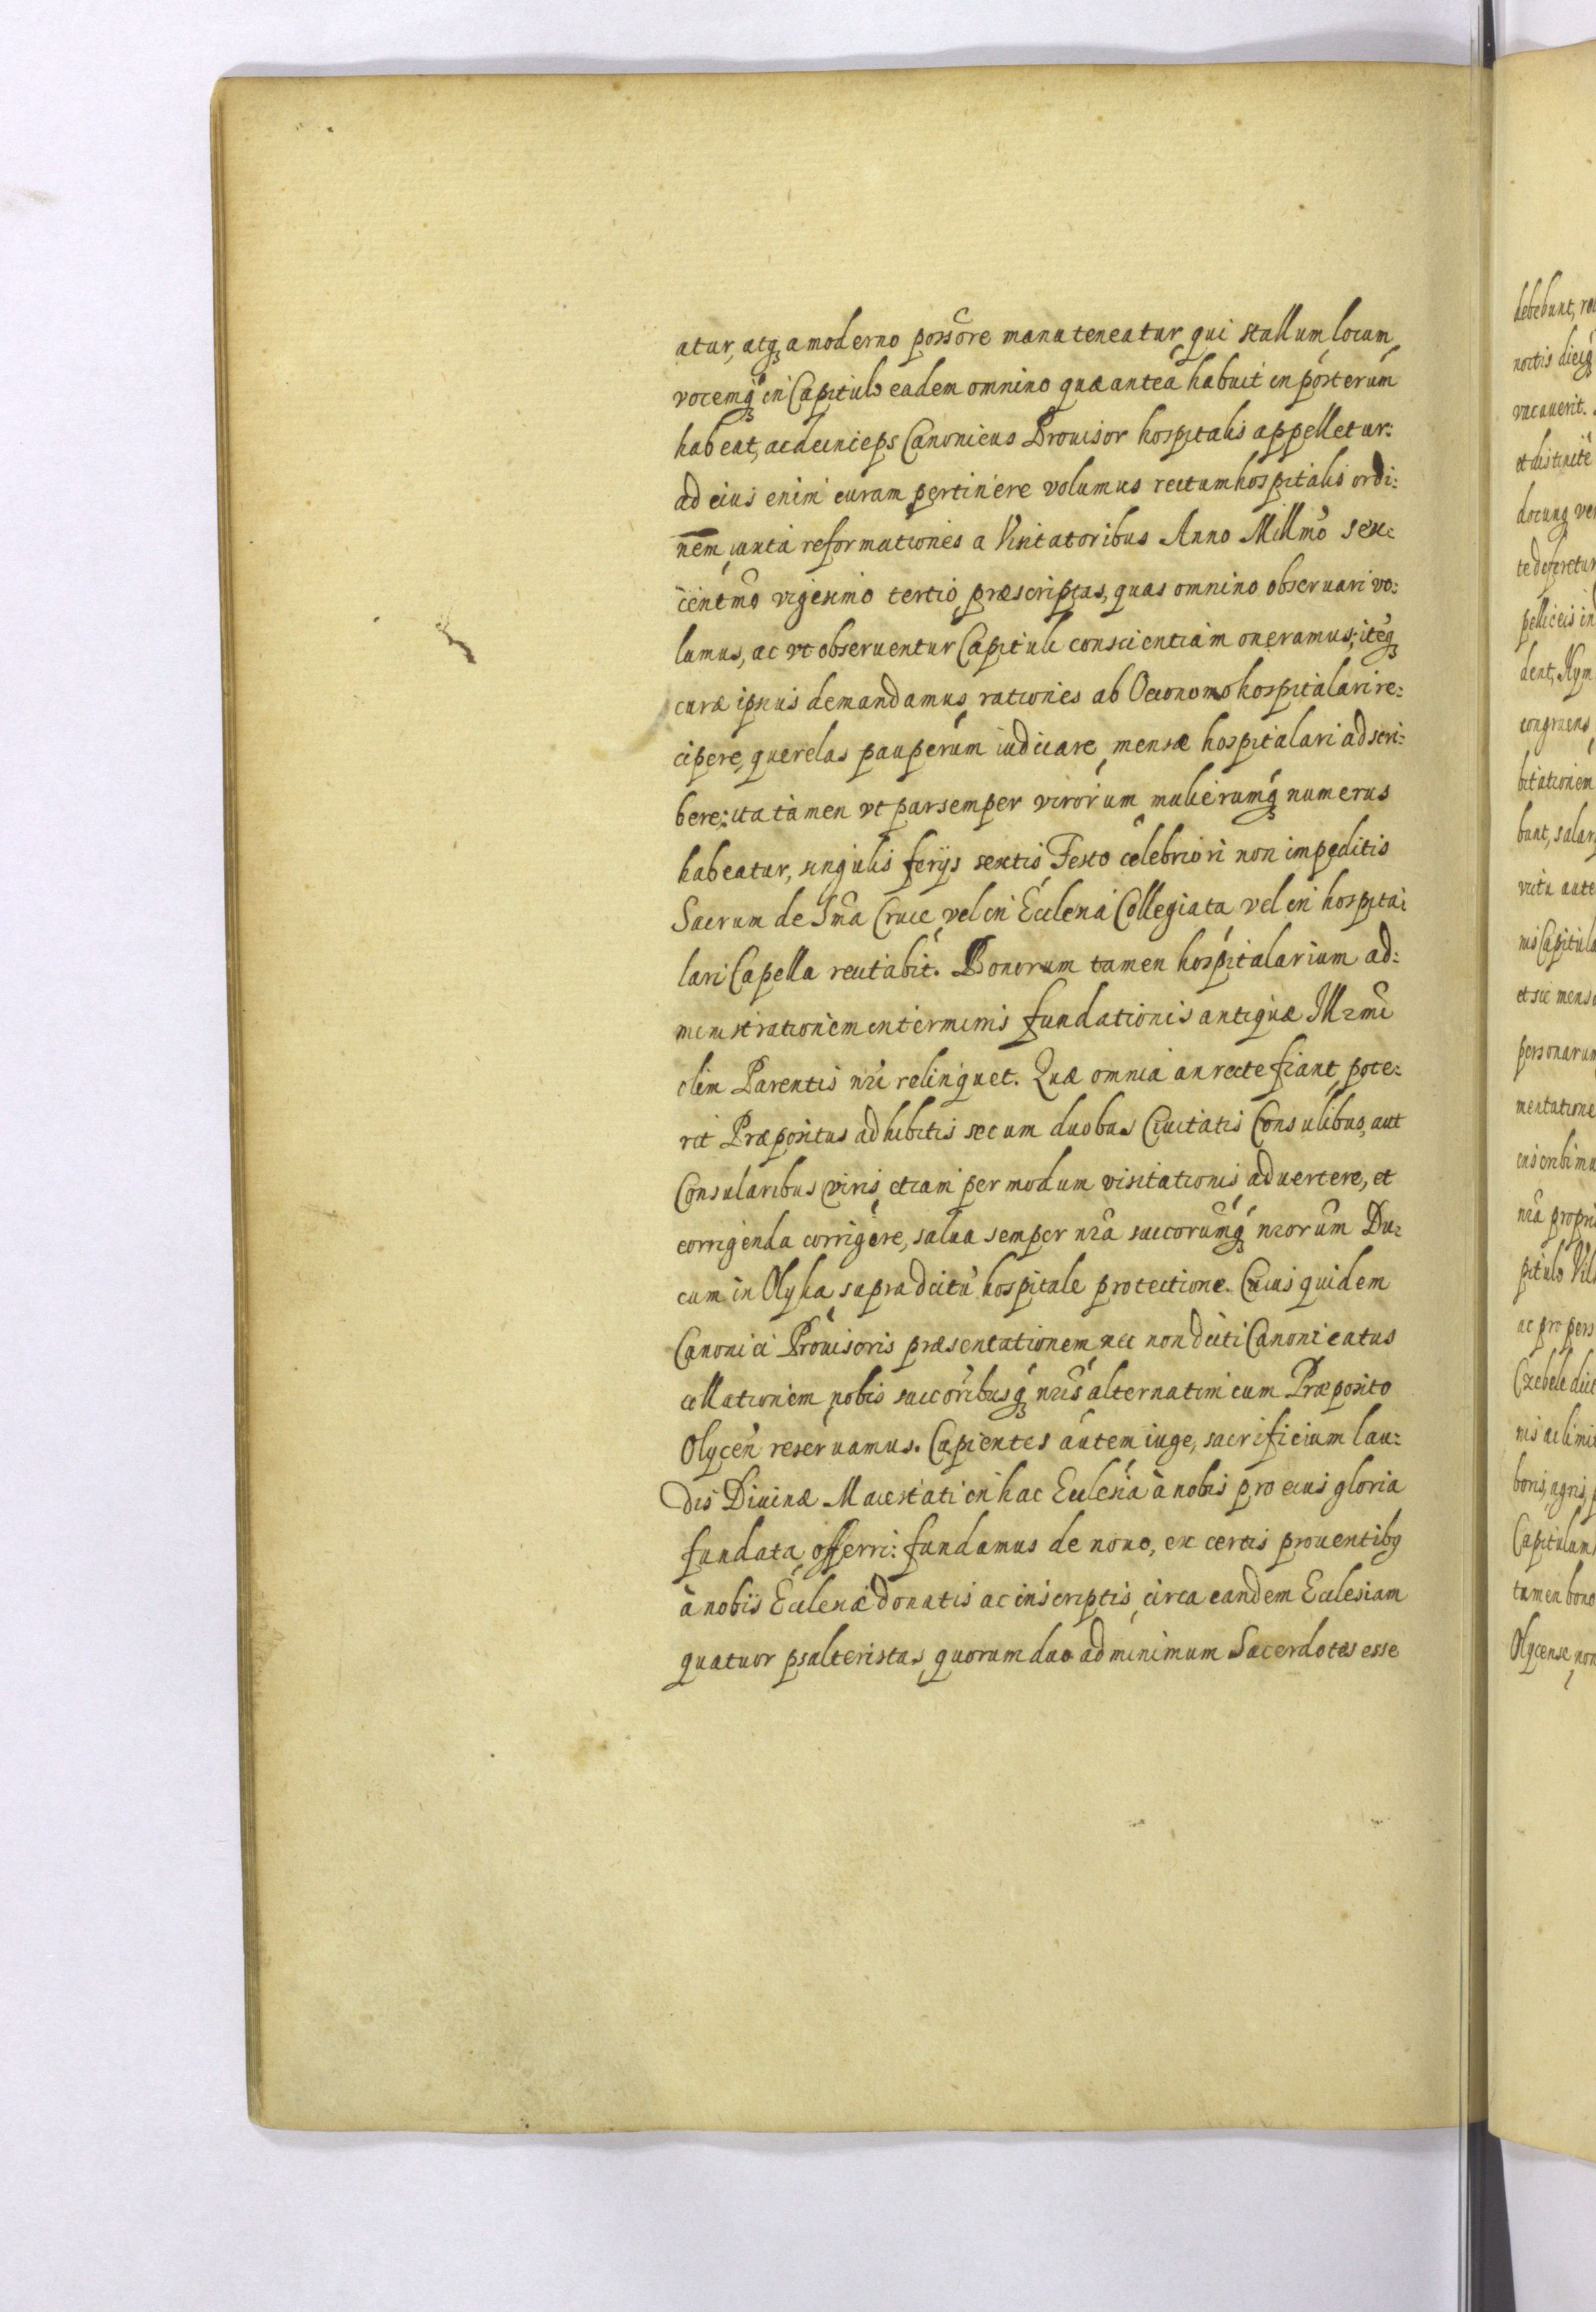 atur, atq́ₛ a moderno possore manuteneatur, qui stallum locum
vocemq́ₛ in Capitulo eadem omnino quæ antea habuit in posterum
habeat, ac deinceps Canonicus Prouisor hospitalis appelletur:
ad eius enim curam pertinere volumus rectum hospitalis ordi:
nem, iuxta reformationes a Visitatoribus Anno Millmo sex:
centmo vigesimo tertio præscriptas, quas omnino obseruari vo:
lumus, ac vt obseruentur Capituli conscientiam oneramus; iteq́ₛ
curæ ipsius demandamus, rationes ab Oeconomo hospitalari re:
cipere, querelas pauperum iudicare, mensæ hospitalari adscri:
bere; ita tamen vt par semper virorum mulierumq́ₛ numerus
habeatur, singulis ferijs sextis, Festo celebriori non impeditis
Sacrum de Sma Cruce, vel in Ecclesia Collegiata vel in hospita:
lari Capella recitabit. Bonorum tamen hospitalarium ad:
ministrationem in terminis fundationis antiquæ Illrmi
olim Parentis nri relinquet. Quæ omnia an recte fiant, pote:
rit Præpositus adhibitis secum duobus Ciuitatis Consulibus, aut
Consularibus viris, etiam per modum visitationis, aduertere, et
corrigenda corrigere, salua semper nra succorumq́ₛ nrorum Du:
cum in Olyka, supradcitu hospitale protectione. Cuius quidem
Canonici Prouisoris præsentationem nec non dciti Canonicatus
collationem, nobis succoribusq́ₛ nris alternatim cum Præposito
Olycen reseruamus. Cupientes autem iuge, sacrificium lau:
dis Diuinæ Maiestati in hac Ecclesia à nobis pro eius gloria
fundata, offerri: fundamus de nouo, ex certis prouentibꝰ
à nobis Ecclesiæ donatis ac inscriptis, circa eandem Ecclesiam
quatuor psalteristas, quorum duo ad minimum Sacerdotes esse
debebunt,
noctis dieiq́ₛ
vacauerit.
et distincte
te deferetur
pelliceis in
dent, Hym
congruens
bunt, salar
nis Capitulo
et sic mensæ
personarum
mentatione
inscribimu
nra propri
pitulo Vil
ac pro pers
Czebele dict
nis ac limit
boris, agris,
Capitulum
tamen bono
Olycense, non